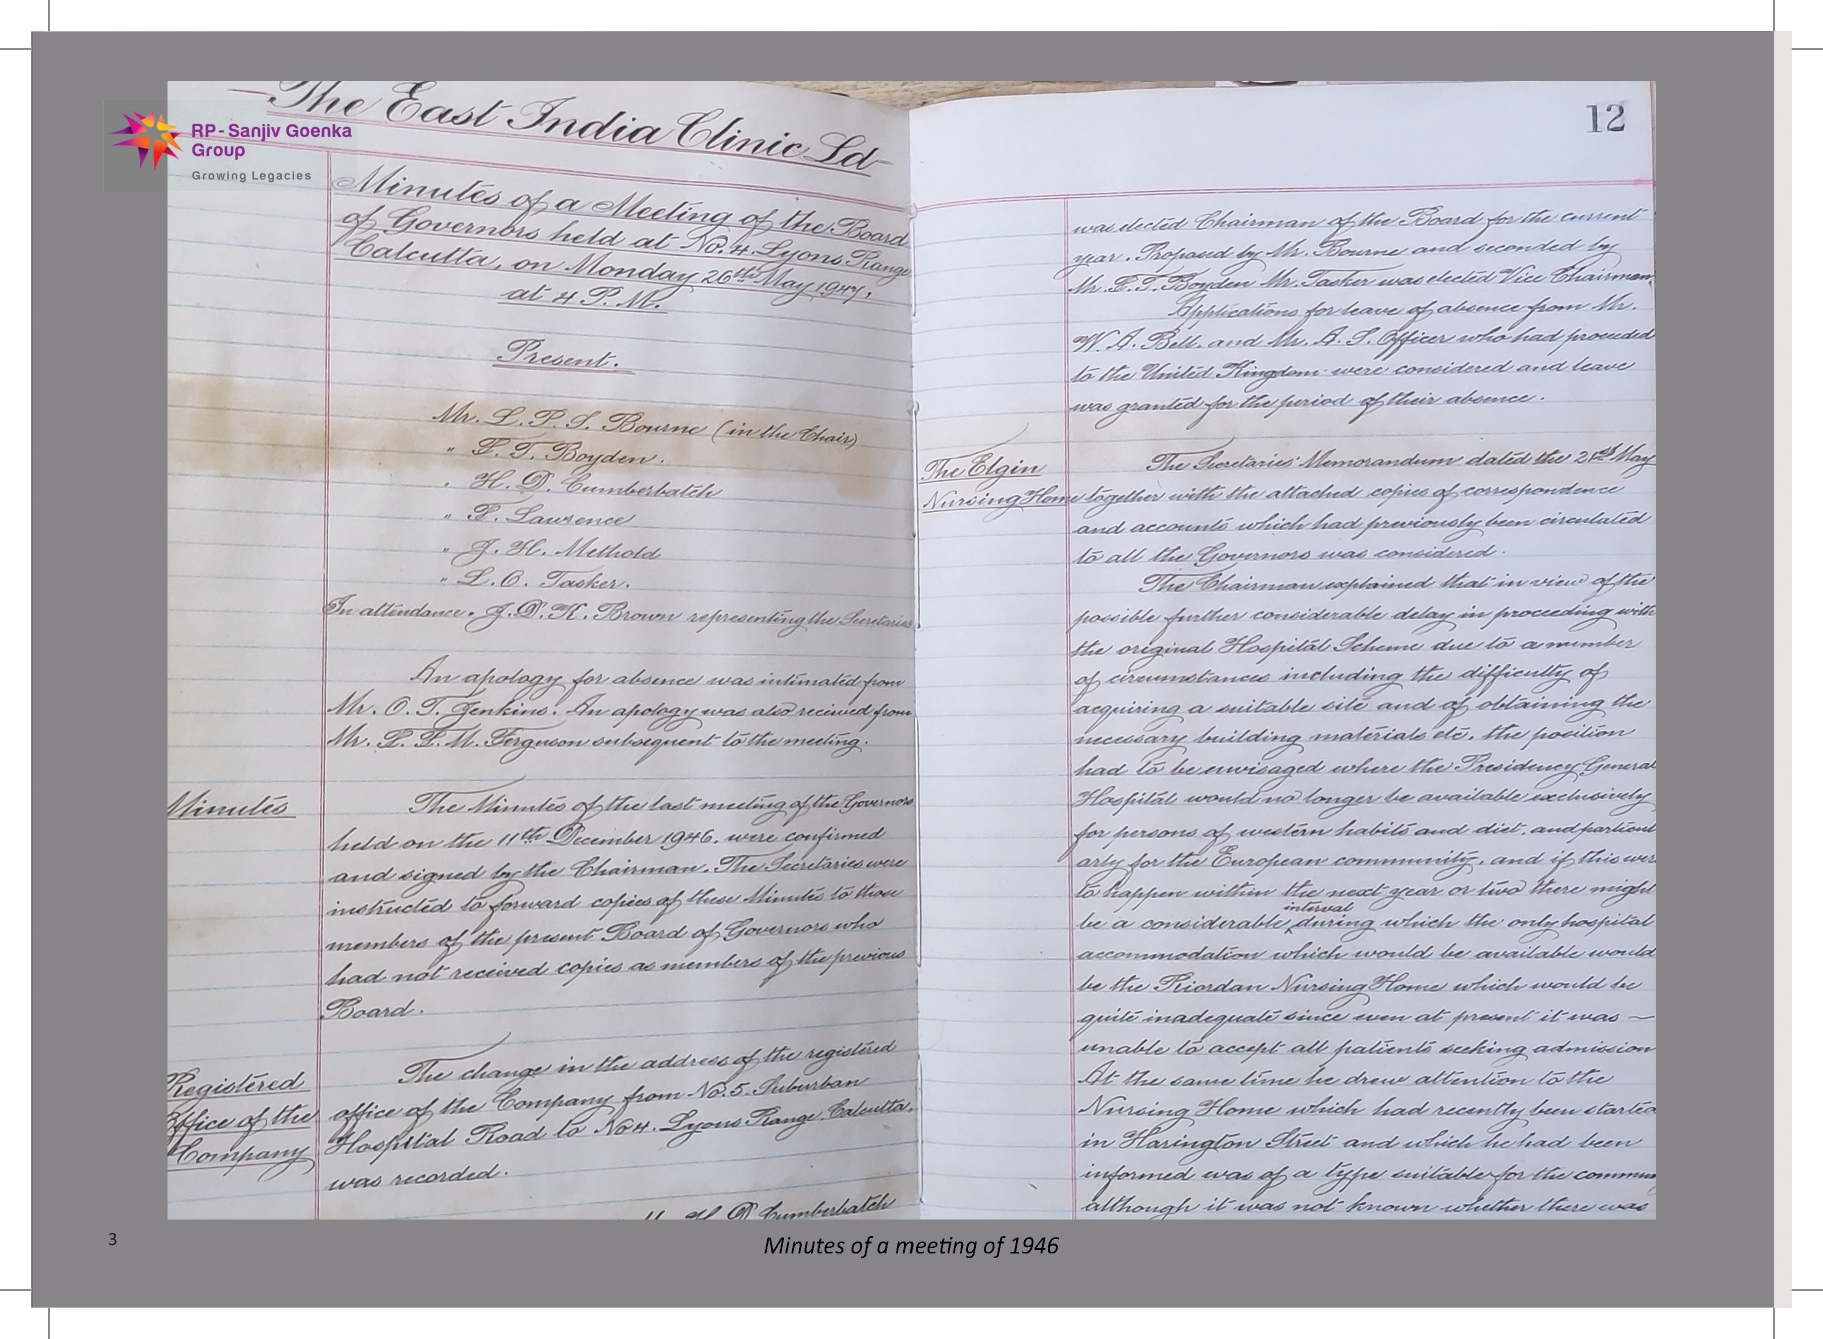 RP-Sanjiv Goenka
Group
Growing Legacies
The East India Clinic Ld
Minutes of a Meeting of the Board
of Governors held at No. 4 Lyons Range
Calcutta, on Monday 26th May 1947,
at 4 P.M.
Present.
Mr. L. P. S. Bourne (in the Chair)
" L. T. Boyden.
" H. D. Cumberbatch
" P. Lawrence
" J. H. Methold
" L. C. Tasker.
In attendance. J. D. K. Brown representing the Secretaries
An apology for absence was intimated from
Mr. C. T. Jenkins. An apology was also received from
Mr. Ferguson subsequent to the meeting.
Minutes
The Minutes of the last meeting of the Governors
held on the 11th December 1946, were confirmed
and signed by the Chairman. The Secretaries were
instructed to forward copies of these Minutes to those
members of the present Board of Governors who
had not received copies as members of the previous
Board.
Registered
Office of the
Company
The change in the address of the registered
office of the Company from No. 5. Suburban
Hospital Road to No 4. Lyons Range. Calcutta,
was recorded.
H. D. Cumberbatch
12
was elected Chairman of the Board for the current
year. Proposed by Mr. Bourne and seconded by
Mr. L. T. Boyden Mr. Tasker was elected Vice Chairman.
Applications for leave of absence from Mr.
W. A. Bell. and Mr. A. S. Officer who had proceeded
to the United Kingdom were considered and leave
was granted for the period of their absence.
The Elgin
Nursing Home
The Secretaries' Memorandum dated the 21st May
together with the attached copies of correspondence
and accounts which had previously been circulated
to all the Governors was considered.
The Chairman explained that in view of the
possible further considerable delay in proceeding with
the original Hospital Scheme due to a number
of circumstances including the difficulty of
acquiring a suitable site and of obtaining the
necessary building materials etc. the position
had to be envisaged where the Presidency General
Hospital would no longer be available exclusively
for persons of western habits and diet, and particul
arly for the European community, and if this were
to happen within the next year or two there might
be a considerable interval during which the only hospital
accommodation which would be available would
be the Riordan Nursing Home which would be
quite inadequate since even at present it was —
unable to accept all patients seeking admission
At the same time he drew attention to the
Nursing Home which had recently been started
in Harington Street and which he had been
informed was of a type suitable for the commun
although it was not known whether there was
3
Minutes of a meeting of 1946